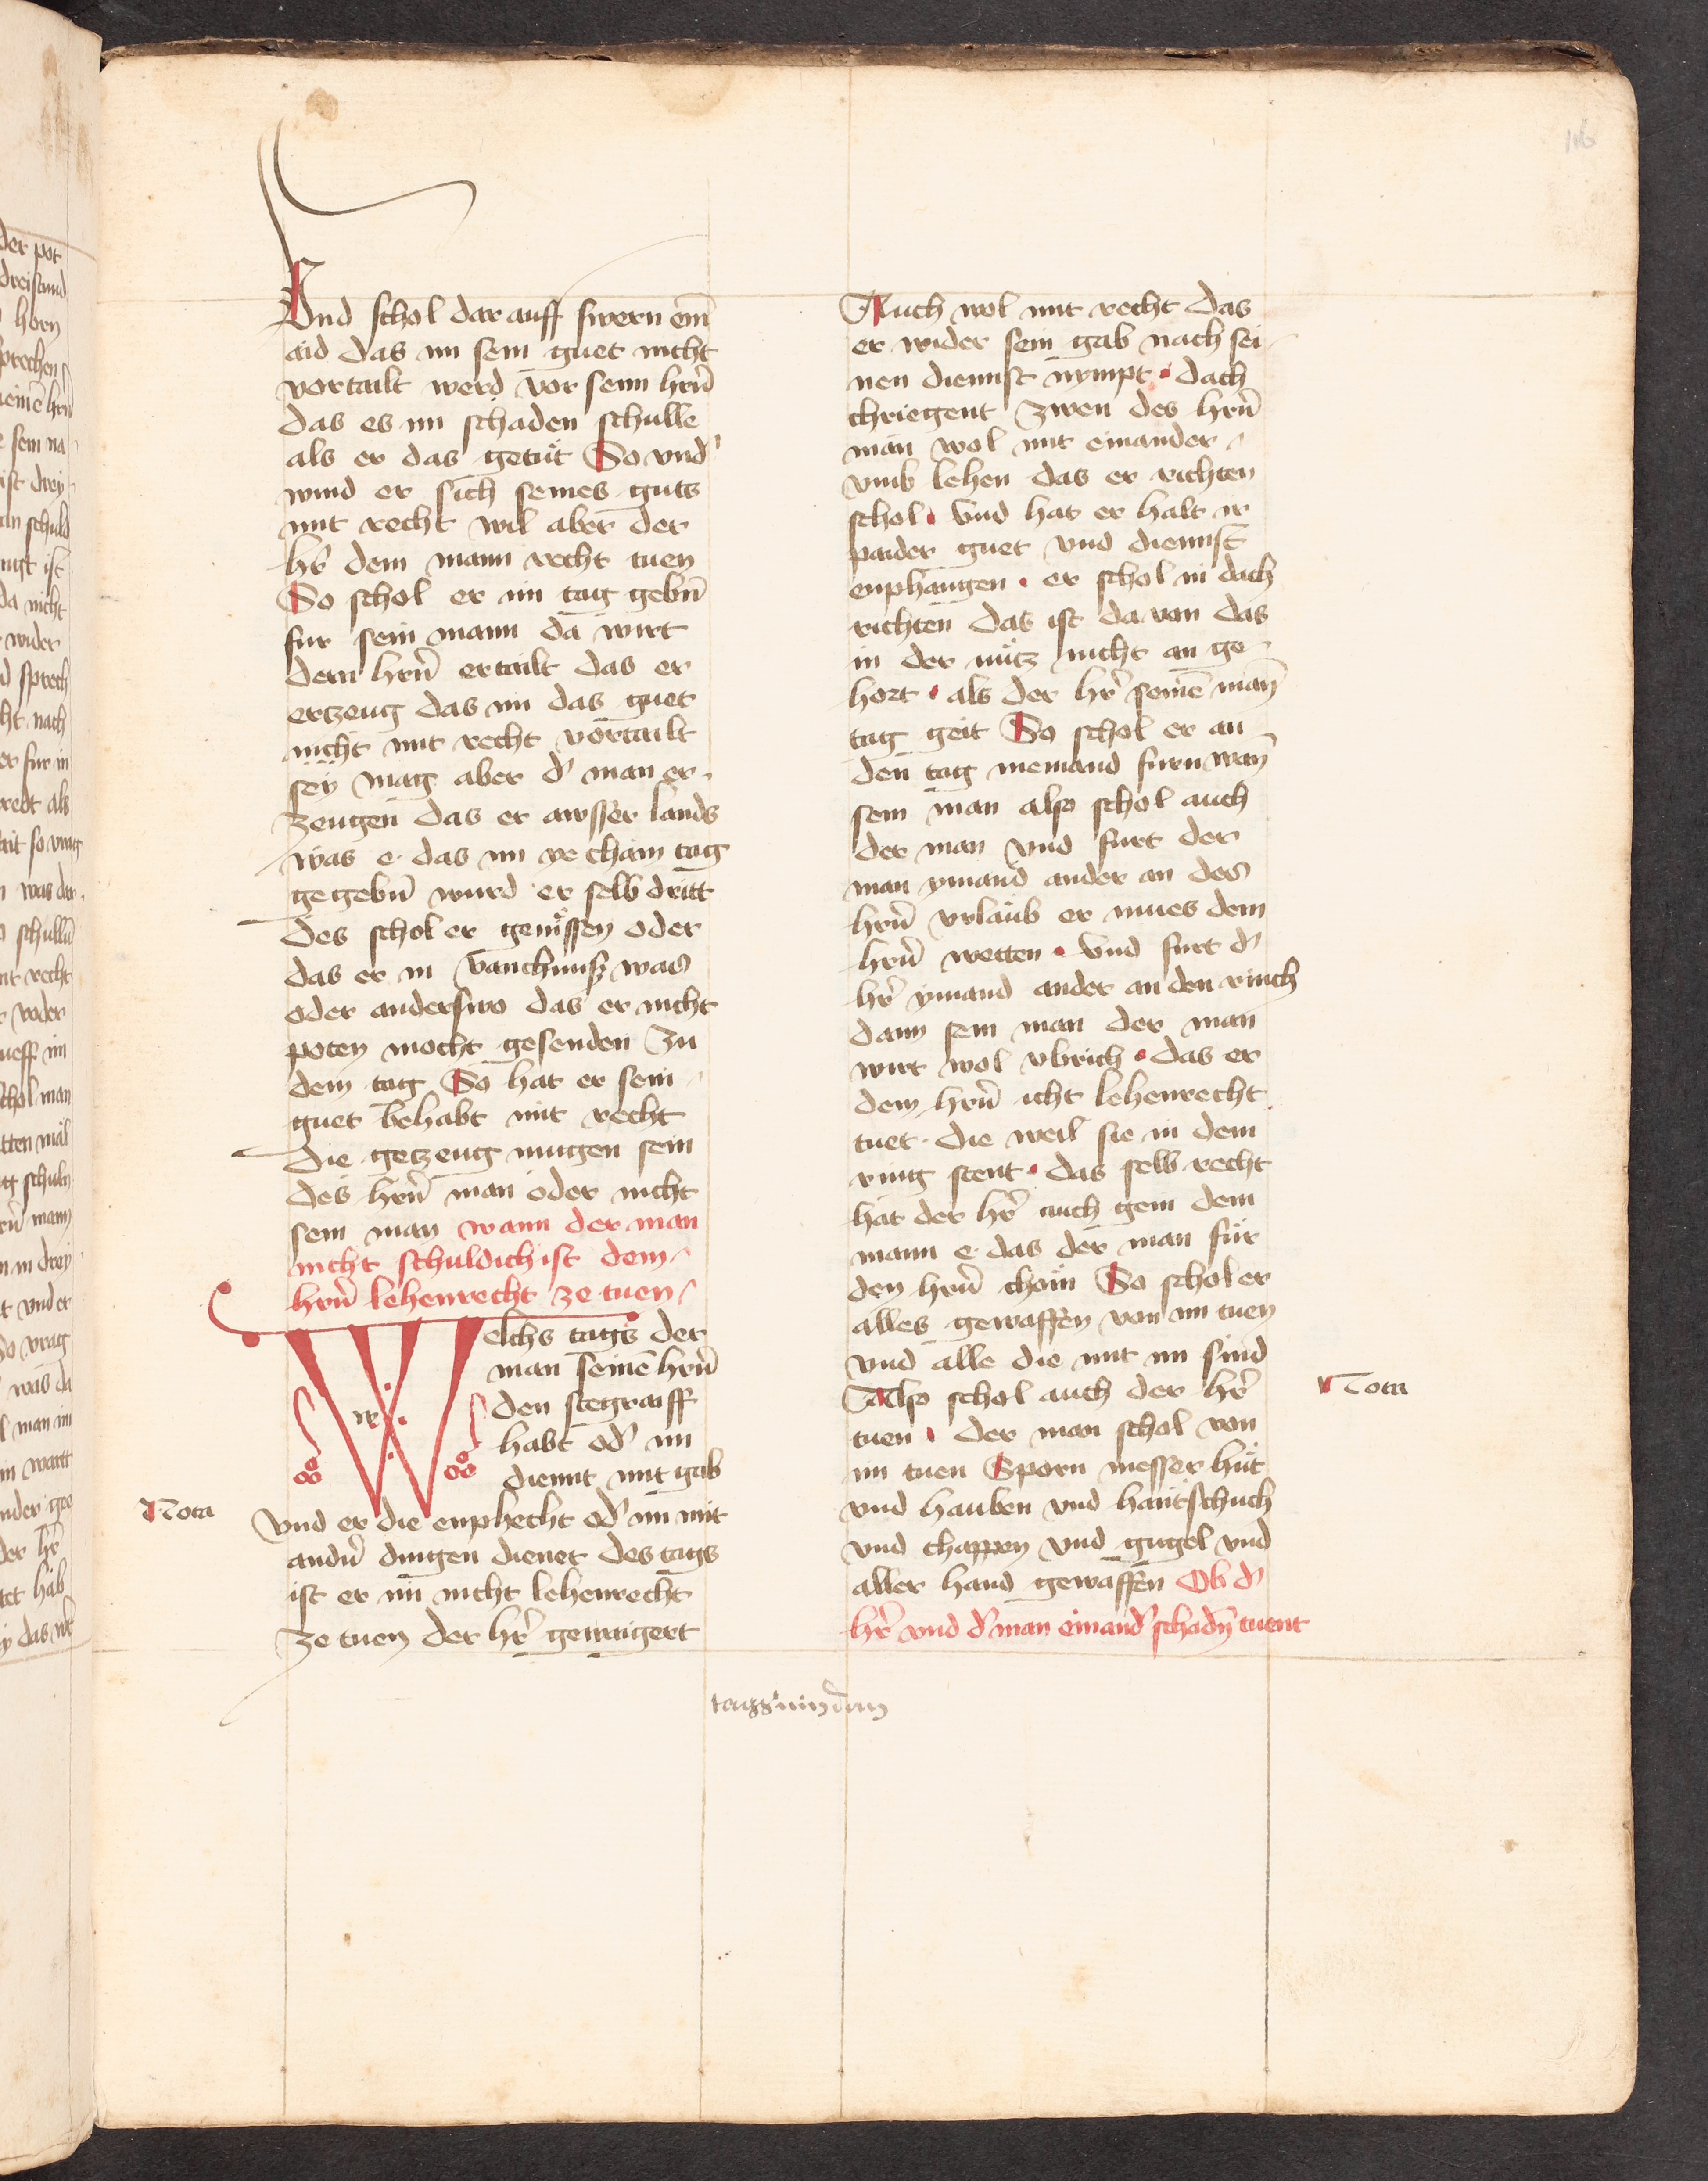 116
Und schol dar auff swern ein̄
aid das im sein guet nicht
vortailt werd vor seim hrn̄
das es im schaden schulle
als er das getut So vnd᷑
wind er sich seines guts
mit recht wil aber der
hr̄ dem mann recht tuen
So schol er im tag gebn̄
fur sein mann da wirt
dem hrn̄ ertailt das er
ertzeug das im das guet
nicht mit recht vortailt
seÿ mag aber d᷑ man er-
zeugen das er awsser lands
was e das im ye chain tag
gegebn̄ wurd er selb dritt
des schol er genissen oder
das er in vanchnusz was
oder anderswo das er nicht
poten mocht gesenden zu
dem tag So hat er sein
guet behabt mit recht
die getzeug mugen sein
des hrn̄ man oder nicht
sein man wann der man
nicht schuldich ist dem
hrn̄ lehenrecht ze tuen
Welchs tags der
man seinē hrn̄
den stegraiff
habt od᷑ im
dinnt mit gab
Nota
vnd er die enphecht od᷑ im mit
andn̄ dingen dienet des tags
ist er im nicht lehenrecht
ze tuen der hr̄ gewaigert
Auch wol mit recht das
er wider sein gab nach sei-
nen diennst nympt dach
chriegent zwen des hrn̄
man wol mit einander
vmb lehen das er richten
schol vnd hat er halt ir
paider guet vnd diennst
enphangen er schol in dach
richten das ist da von das
in der nutz nicht an ge-
hort als der hr̄ seinē man̄
tag geit So schol er an
den tag niemand furn wan̄
sein man also schol auch
der man vnd furt der
man ymand ander an des
hrn̄ vrlaub er mues dem
hrn̄ wetten vnd furt d᷑
hr̄ ymand ander an den rinch
dann sein man der man
wirt wol vbrich das er
dem hrn̄ icht lehenrecht
tuet die weil sie in dem
ring stent das selb recht
hat der hr̄ auch gein dem
mann e das der man für
den hrn̄ chöm So schol er
alles gewaffen von im tuen
vnd alle die mit im sind
Also schol auch der hr̄
Nota
tuen der man schol von
im tuen Sporn messer hüt
vnd hauben vnd hantschuch
vnd chappen vnd gugel vnd
aller hand gewaffen Ob d᷑
hr̄ vnd d᷑ man einand᷑ schadn̄ tuent